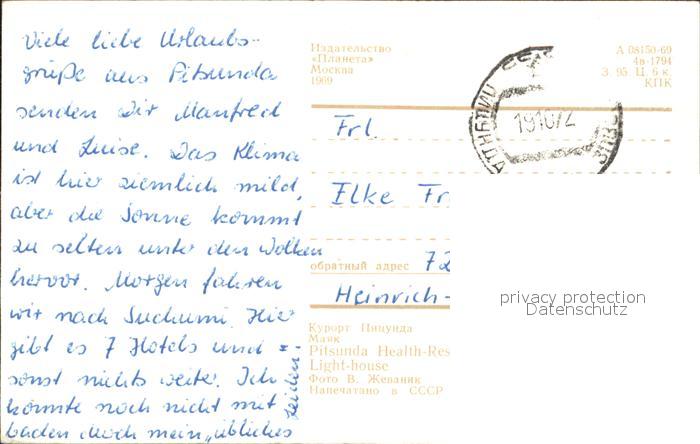 Viele liebe Urlaubs-
grüße aus Pitsunda
senden Dir Manfred
und Luise. Das Klima
ist hier ziemlich mild,
aber die Sonne kommt
zu selten unter den Wolken
hervor. Morgen fahren
wir nach Suchumi. Hier
gibt es 7 Hotels und
sonst nichts weiter. Ich
konnte noch nicht mit
baden durch mein "übliches
Leiden
Издательство
«Планета»
Москва
1969
А 08150-69
4в-1794
З. 95. Ц. 6 к.
КПК
Frl.
Elke Fr
обратный адрес 72
Heinrich-
Курорт Пицунда
Маяк
Pitsunda Health-Res
Light-house
Фото В. Жеваник
Напечатано в СССР
privacy protection
Datenschutz